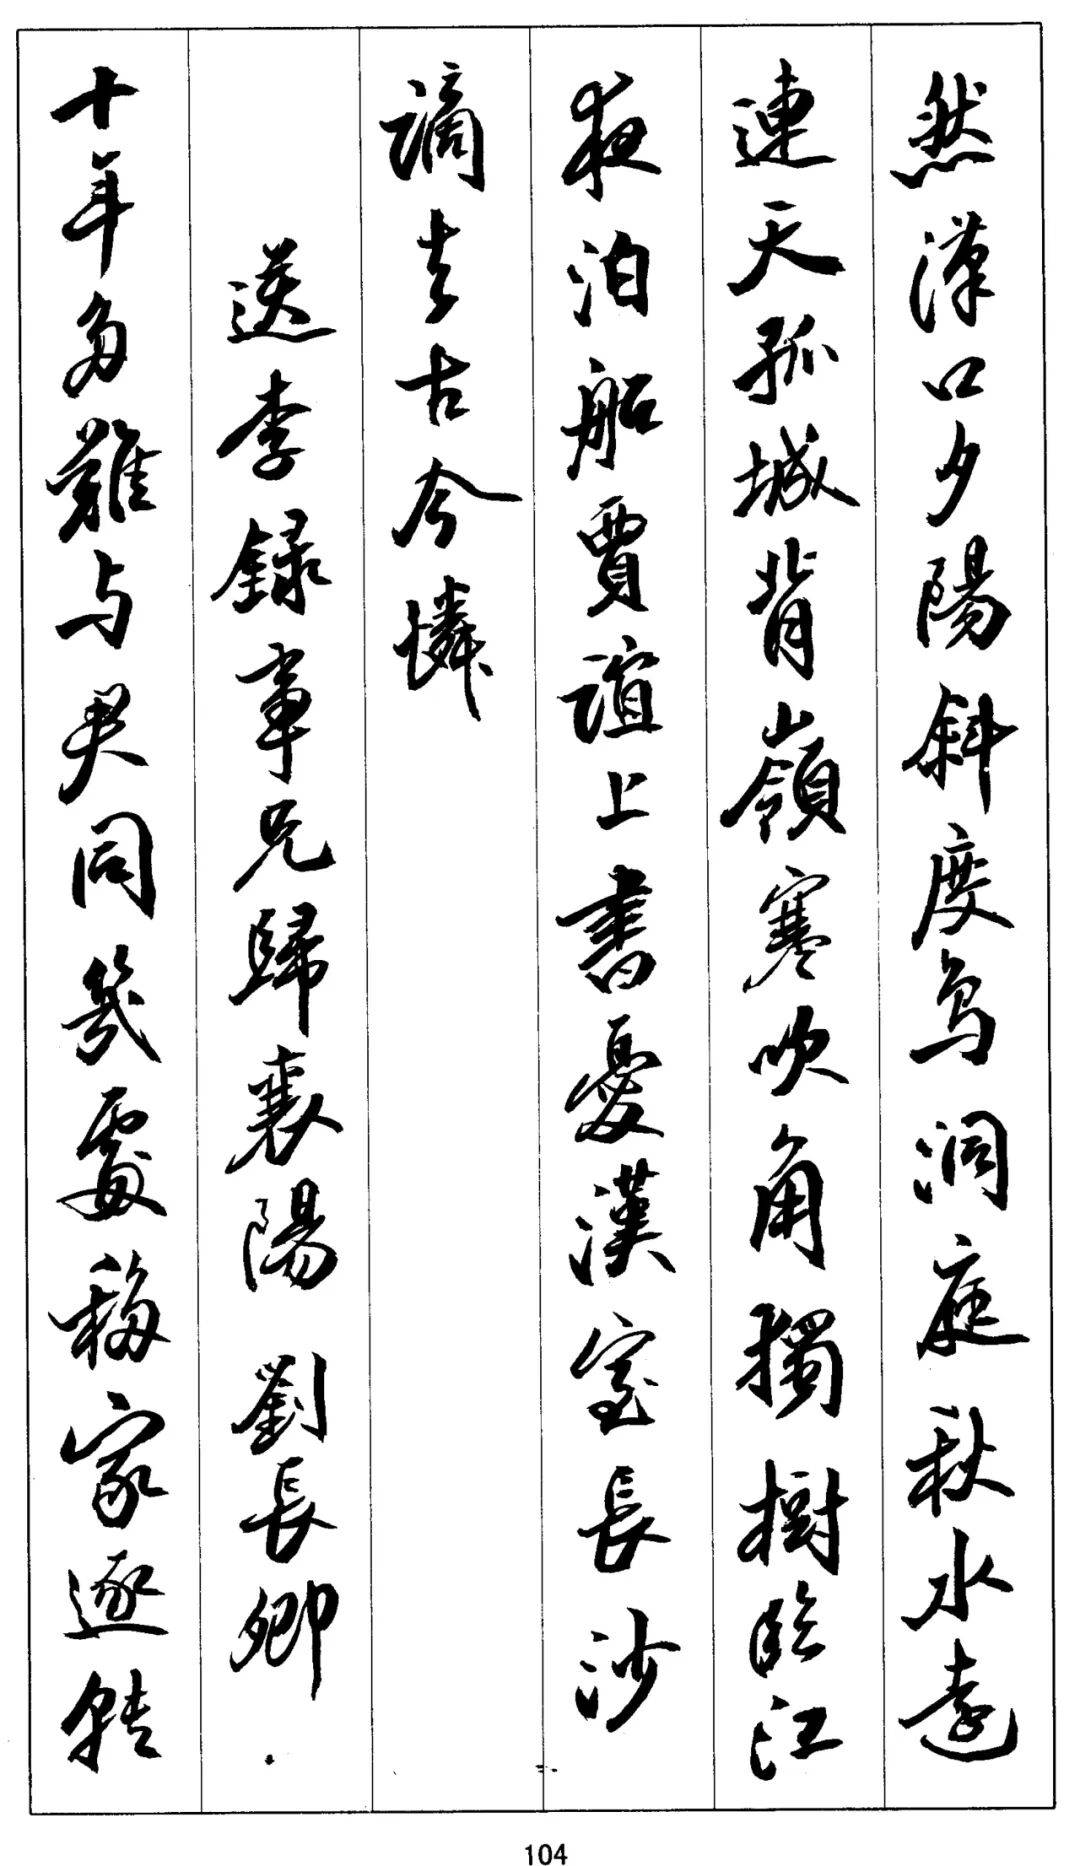 然漢口夕陽斜度鳥洞庭秋水遠
連天孤城背嶺寒吹角獨樹臨江
夜泊船賈誼上書憂漢室長沙
謫去古今憐
送李録事兄歸襄陽 劉長卿
十年多難与君同幾處移家逐轉
104